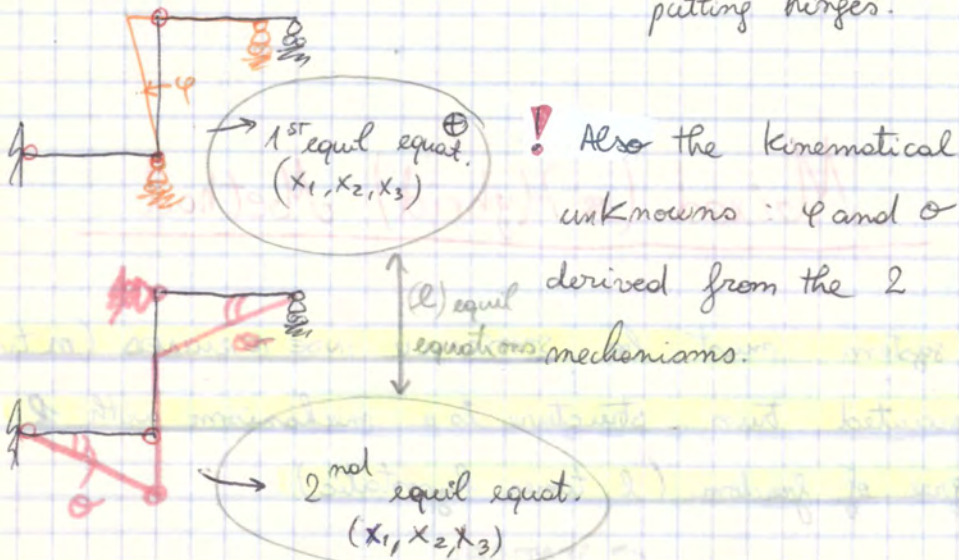 putting hinges.
φ
→ 1st equil equat. ⊕
(X1, X2, X3)
! Also the kinematical
unknowns : φ and θ
derived from the 2
mechanisms.
(l) equil
equations
θ
θ
→ 2nd equil equat.
(X1, X2, X3)